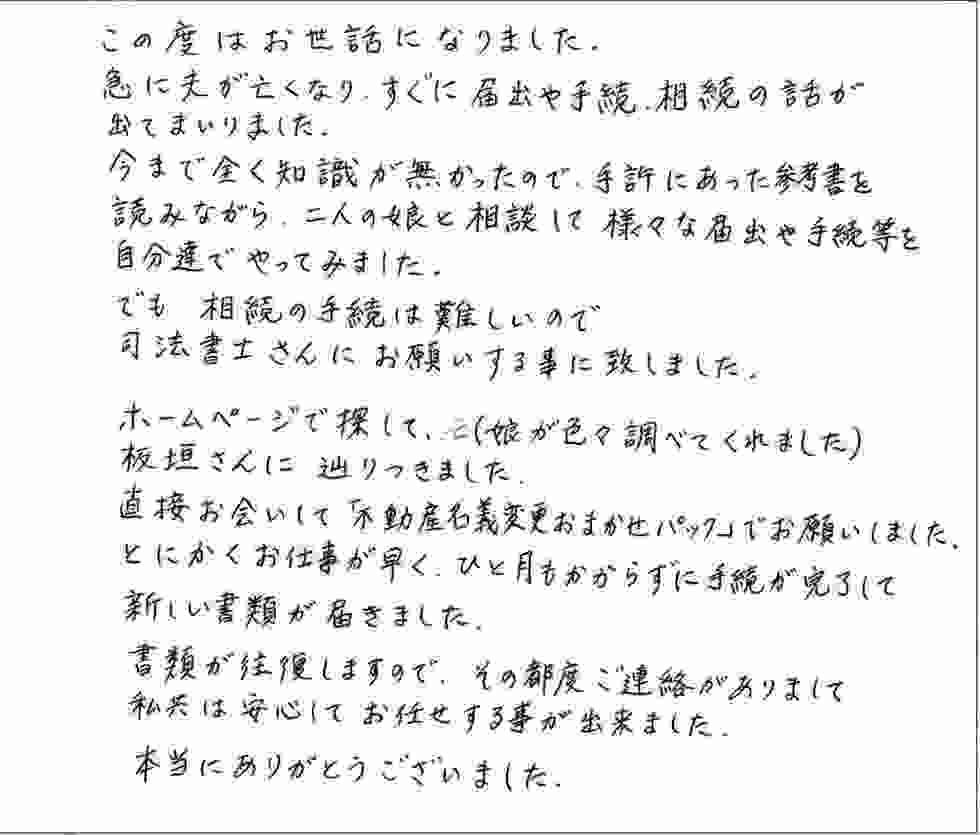 この度はお世話になりました.
急に夫が亡くなり、すぐに届出や手続、相続の話が
出てまいりました.
今まで全く知識が無かったので、手許にあった参考書を
読みながら、二人の娘と相談して様々な届出や手続等を
自分達でやってみました.
でも 相続の手続は難しいので
司法書士さんに お願いする事に致しました.
ホームページで探して、(娘が色々調べてくれました)
板垣さんに 辿りつきました.
直接お会いして「不動産名義変更おまかせパック」でお願いしました.
とにかくお仕事が早く、ひと月もかからずに手続が完了して
新しい書類が届きました.
書類が往復しますので、その都度ご連絡がありまして
私共は安心してお任せする事が出来ました.
本当にありがとうございました.